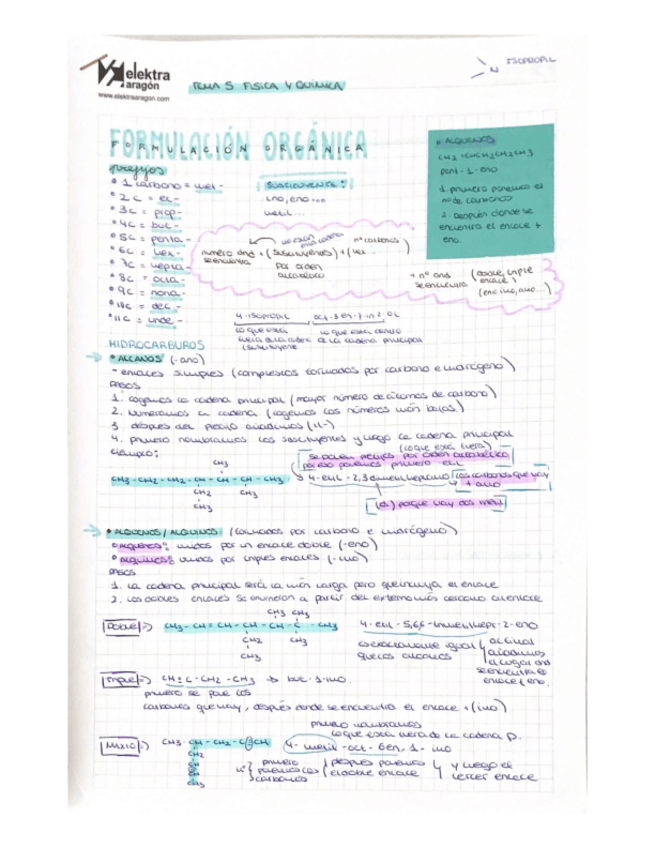 elektra
aragón
www.elektraaragon.com
TEMA 5 FISICA Y QUÍMICA
ISOPROPIL
FORMULACIÓN ORGÁNICA
prefijos
• 1 carbono = met-
• 2 C = et-
• 3C = prop-
• 4C = but-
• 5C = penta-
• 6C = hex-
• 7C = hepta-
• 8C = octa-
• 9C = nona-
• 10C = dec-
• 11C = unde-
SUSTITUYENTE:
ino, eno...
metil...
• ALQUENOS
CH2=CHCH2CH2CH3
pent-1-eno
1. primero ponemos el
nº de carbonos
2. Después donde se
encuentra el enlace +
eno.
nº carbonos
número dnd + (sustituyentes) + (
se encuentra
por orden
alfabético
+ nº dnd
se encuentra
(doble, triple
enlace)
(eno, ino, ano...)
4-isopropil
oct-3en-7-in-2-ol
lo que está
fuera de la cadena
(sustituyente
lo que está dentro
de la cadena principal
HIDROCARBUROS
→ • ALCANOS (-ano)
- enlaces simples (compuestos formados por carbono e hidrógeno)
PASOS
1. cogemos la cadena principal (mayor número de átomos de carbono)
2. Numeramos la cadena (cogemos los números más bajos.)
3. después del prefijo añadimos (il-)
4. primero nombramos los sustituyentes y luego la cadena principal
(lo que está fuera)
ejemplo:
se ponen prefijos por orden alfabético
por eso ponemos primero etil
CH3
CH3-CH2-CH2-CH-CH-CH-CH3
CH2 CH3
CH3
4-etil-2,3 dimetilheptano
los carbonos que hay
+ ano
(di) porque hay dos metil
→ • ALQUENOS/ALQUINOS (formados por carbono e hidrógeno)
• alquenos: unidos por un enlace doble (-eno)
• alquinos: unidos por triples enlaces (-ino)
PASOS
1. La cadena principal será la más larga pero que incluya el enlace
2. Los dobles enlaces se enumeran a partir del extremo más cercano al enlace
CH3 CH3
Doble => CH3-CH=CH-CH-CH-C-CH3
CH2 CH3
CH3
4-etil-5,6,6-trimetilhept-2-eno
es exactamente igual
que los alcanos
al final
añadimos
el lugar dnd
se encuentra el
enlace + eno.
Triple => CH≡C-CH2-CH3 → but-1-ino.
primero se pone los
carbonos que hay, después donde se encuentra el enlace + (ino)
primero nombramos
lo que está fuera de la cadena p.
Mixto => CH3-CH-CH2-C≡CH
CH2
CH3
4-metil-oct-6en, 1-ino
primero
ponemos los
carbonos
después ponemos
el doble enlace
y luego el
tercer enlace